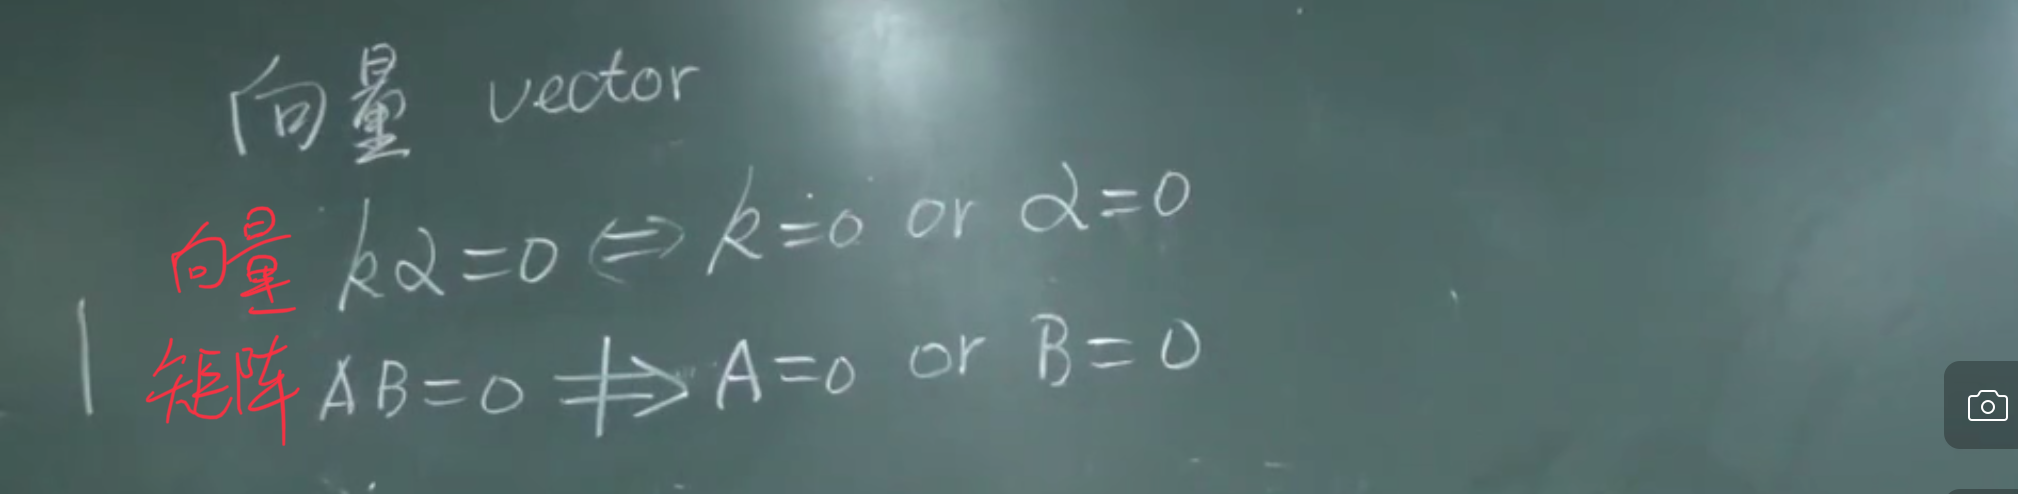 向量 vector
向量 kα=0 ⇔ k=0 or α=0
矩阵 AB=0 ⇏ A=0 or B=0